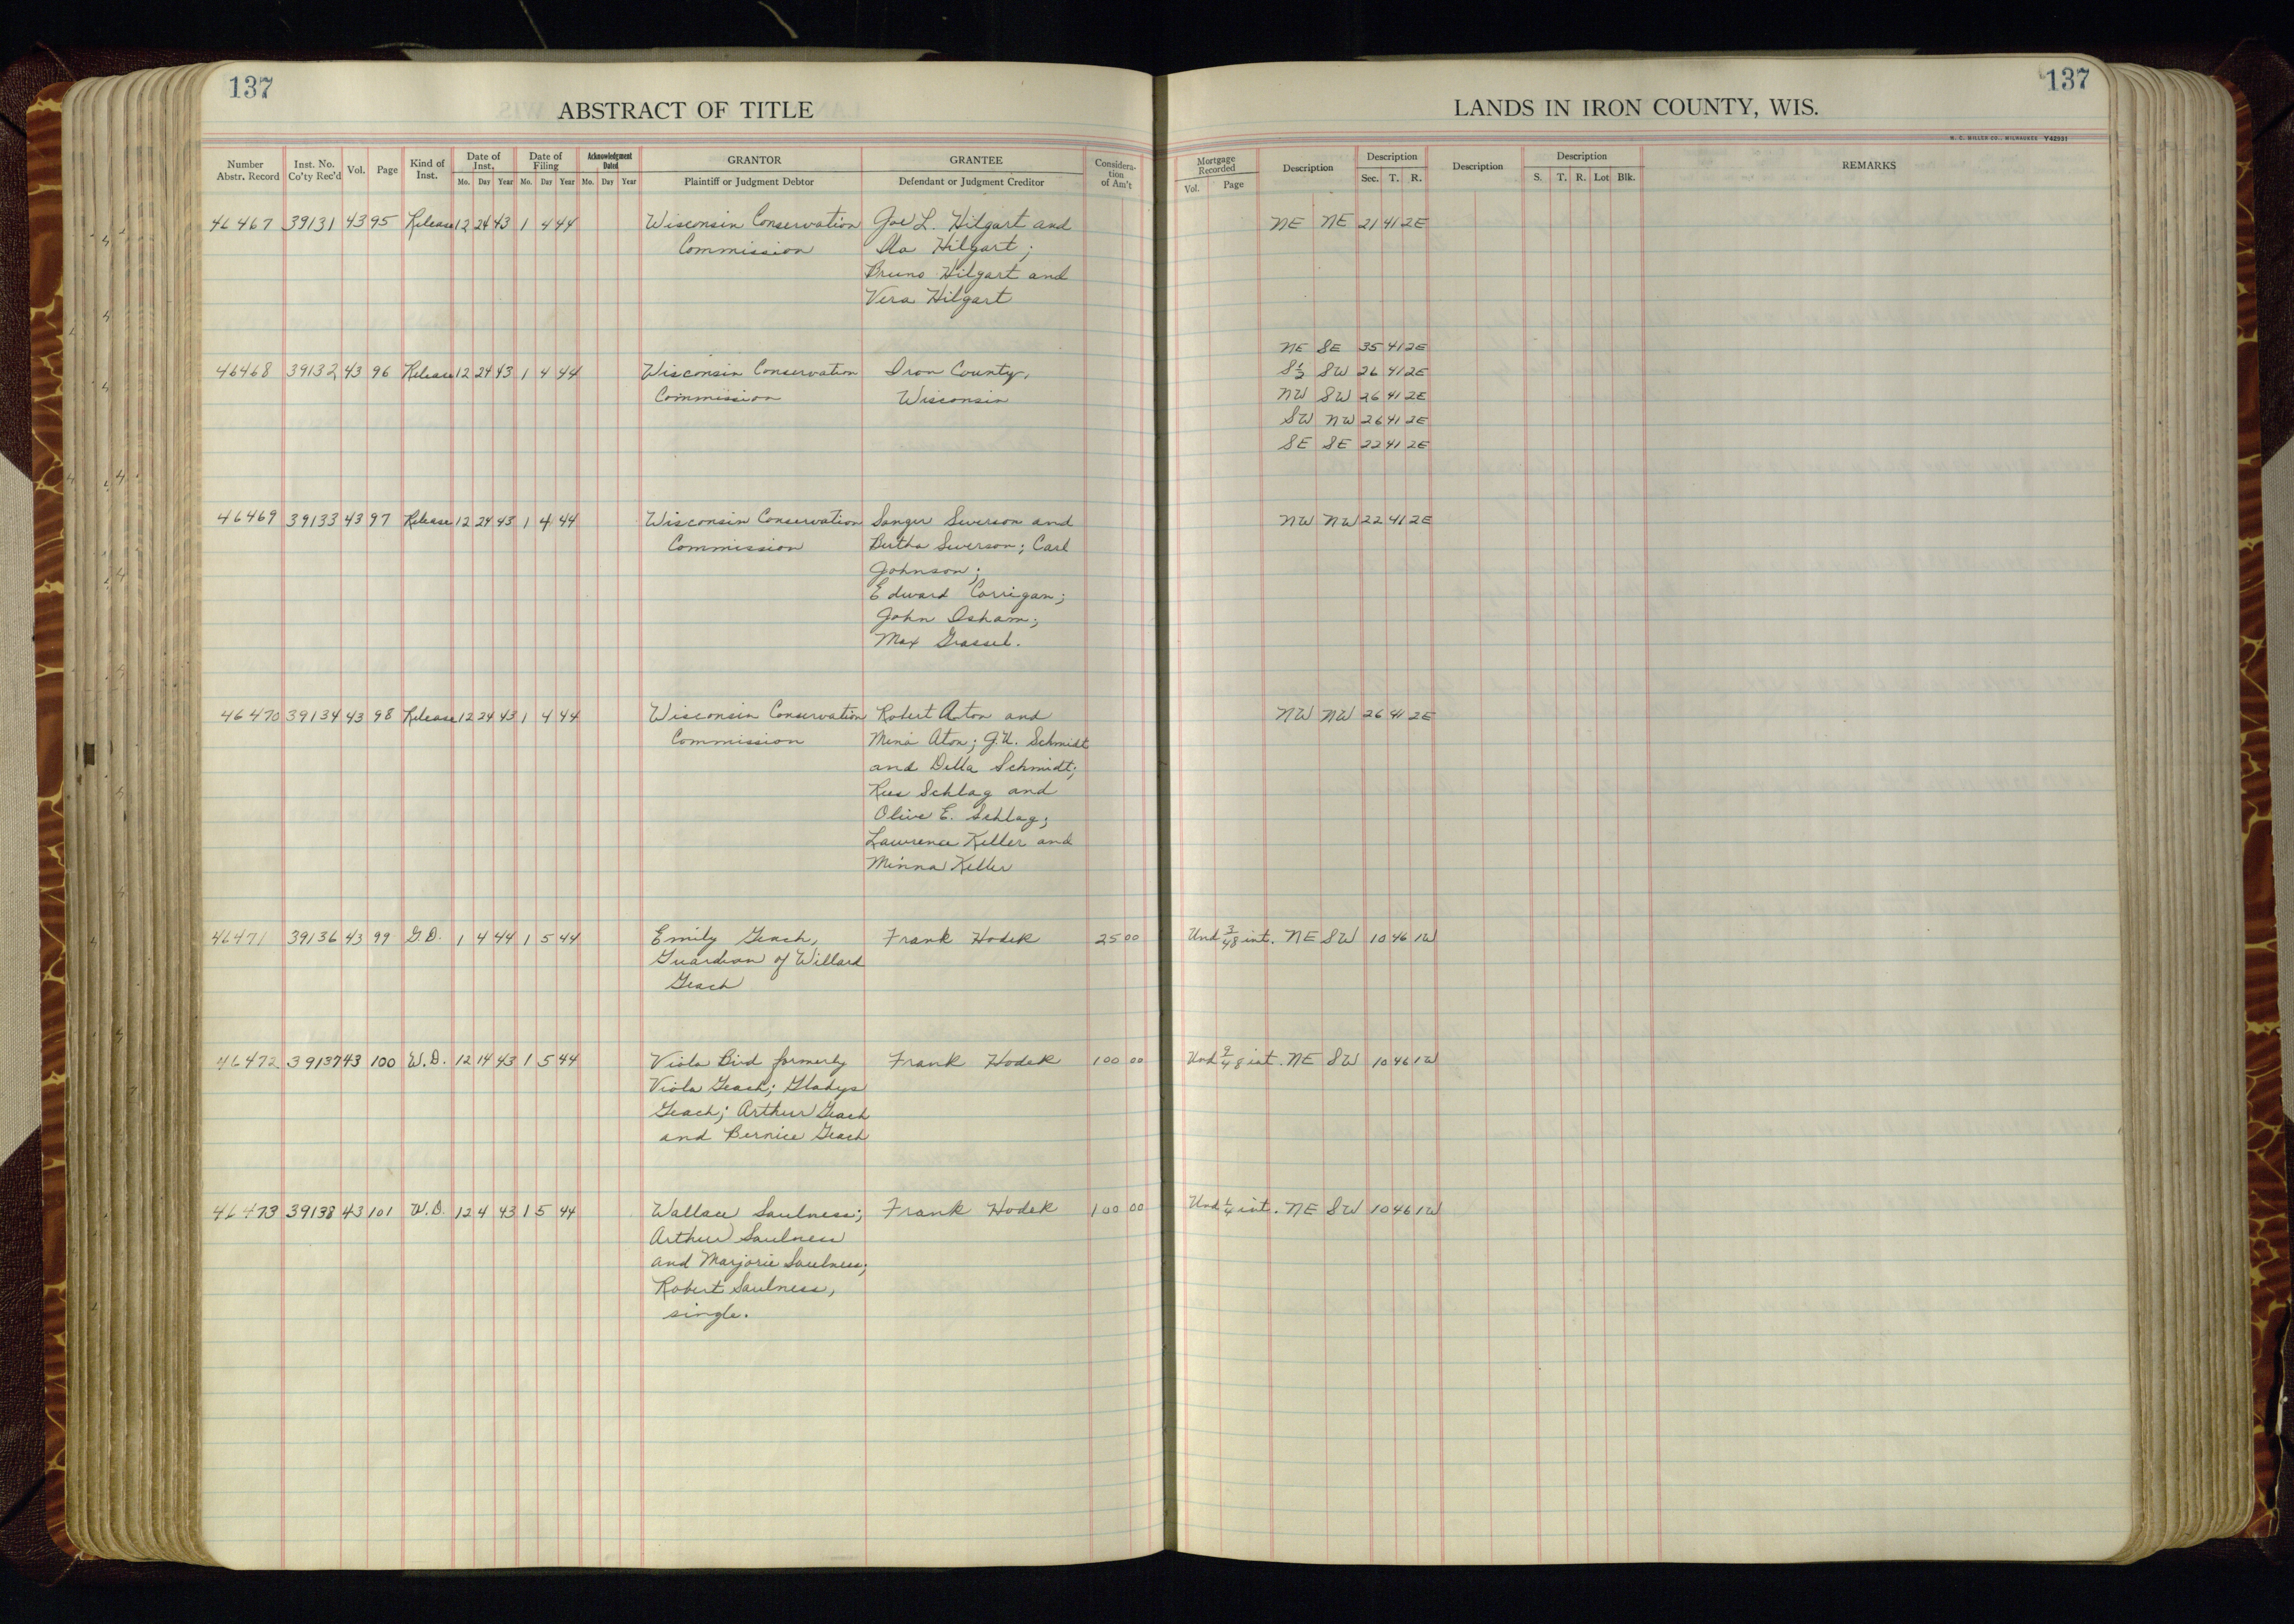 137
137
ABSTRACT OF TITLE
LANDS IN IRON COUNTY, WIS.
H. C. MILLER CO., MILWAUKEE Y42931
Number Abstr. Record
Inst. No. Co'ty Rec'd
Vol.
Page
Kind of Inst.
Date of Inst.
Mo. Day Year
Date of Filing
Mo. Day Year
Acknowledgment Dated
Mo. Day Year
GRANTOR
Plaintiff or Judgment Debtor
GRANTEE
Defendant or Judgment Creditor
Considera-tion of Am't
Mortgage Recorded
Vol. Page
Description
Description
Sec. T. R.
Description
Description
S. T. R. Lot Blk.
REMARKS
46467 39131 43 95 Release 12 24 43 1 4 44 Wisconsin Conservation Joe L. Hilgart and NE NE 21 41 2E
Commission Ila Hilgart;
Bruno Hilgart and
Vera Hilgart
NE SE 35 41 2E
46468 39132 43 96 Release 12 24 43 1 4 44 Wisconsin Conservation Iron County, S½ SW 26 41 2E
Commission Wisconsin NW SW 26 41 2E
SW NW 26 41 2E
SE SE 22 41 2E
46469 39133 43 97 Release 12 24 43 1 4 44 Wisconsin Conservation Sanger Severson and NW NW 22 41 2E
Commission Bertha Severson; Carl
Johnson;
Edward Corrigan;
John Isham;
Max Grassel.
46470 39134 43 98 Release 12 24 43 1 4 44 Wisconsin Conservation Robert Aton and NW NW 26 41 2E
Commission Mina Aton; J.U. Schmidt
and Della Schmidt;
Rus Schlag and
Olive E. Schlag;
Lawrence Keller and
Minna Keller
46471 39136 43 99 G.D. 1 4 44 1 5 44 Emily Geach, Frank Hodek 25 00 Und 3/48 int. NE SW 10 46 1W
Guardian of Willard
Geach
46472 39137 43 100 W.D. 12 14 43 1 5 44 Viola Bird formerly Frank Hodek 100 00 Und 9/48 int. NE SW 10 46 1W
Viola Geach; Gladys
Geach; Arthur Geach
and Bernice Geach
46473 39138 43 101 W.D. 12 4 43 1 5 44 Wallace Saulness; Frank Hodek 100 00 Und ¼ int. NE SW 10 46 1W
Arthur Saulness
and Marjorie Saulness;
Robert Saulness,
single.